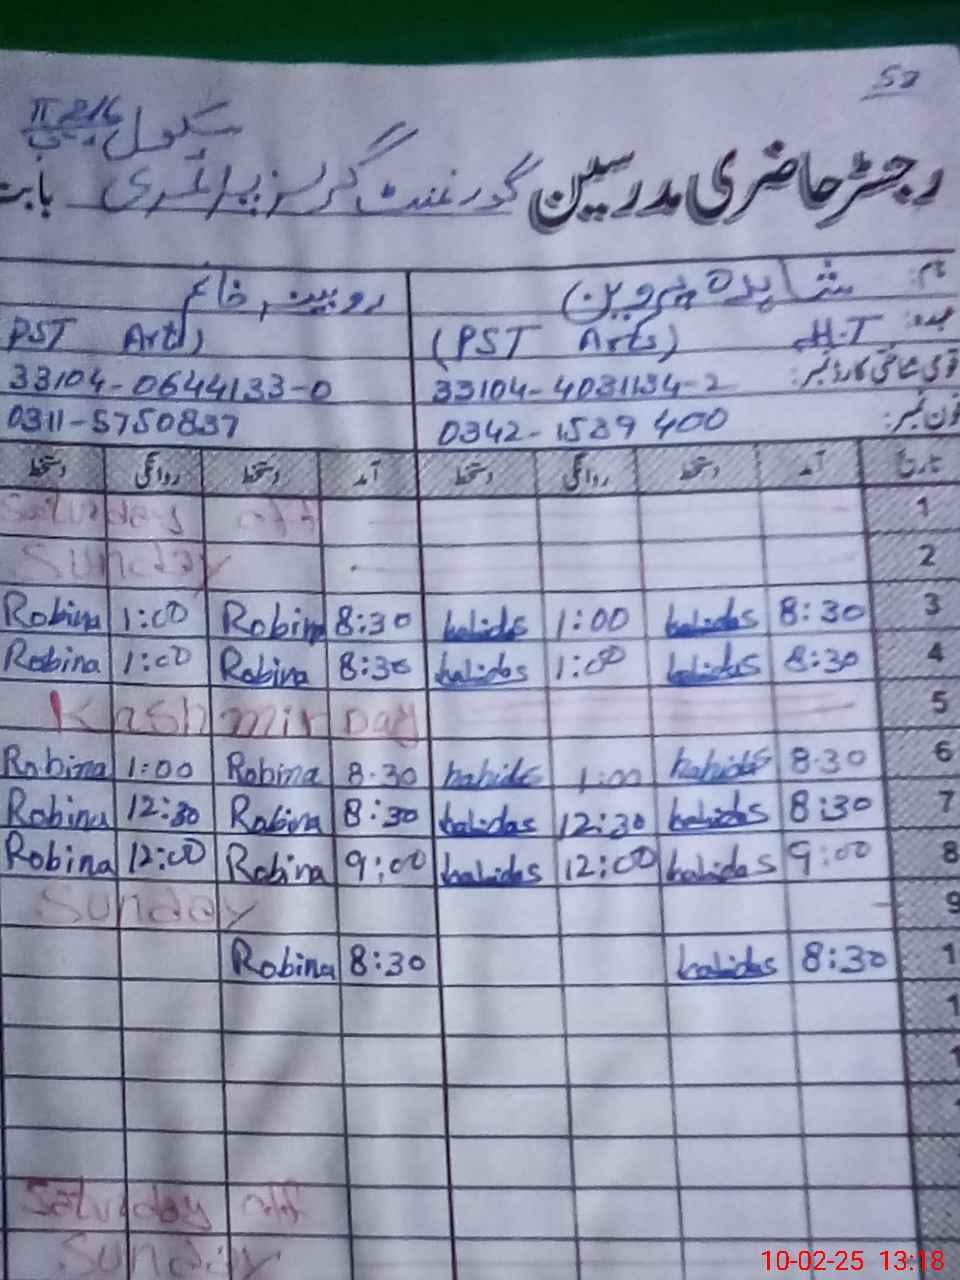 52
رجسٹر حاضری مدرسین گورنمنٹ گرلز پرائمری سکول بابت
نام: شاہدہ پروین روبینہ خانم
عہدہ: H.T (PST Arts) PST Arts)
قومی شناختی کارڈ نمبر: 33104-4031134-2 33104-0644133-0
فون نمبر: 0342-1539400 0311-5750837
تاریخ آمد دستخط روانگی دستخط آمد دستخط روانگی دستخط
1 Saturday off
2 Sunday
Robina 1:00 Robina 8:30 1:00 8:30 3
Robina 1:00 Robina 8:30 1:00 8:30 4
Kashmir Day 5
Robina 1:00 Robina 8:30 1:00 8:30 6
Robina 12:30 Robina 8:30 12:30 8:30 7
Robina 12:00 Robina 9:00 12:00 9:00 8
Sunday 9
Robina 8:30 8:30 1
1
1
Saturday off
Sunday
10-02-25 13:18